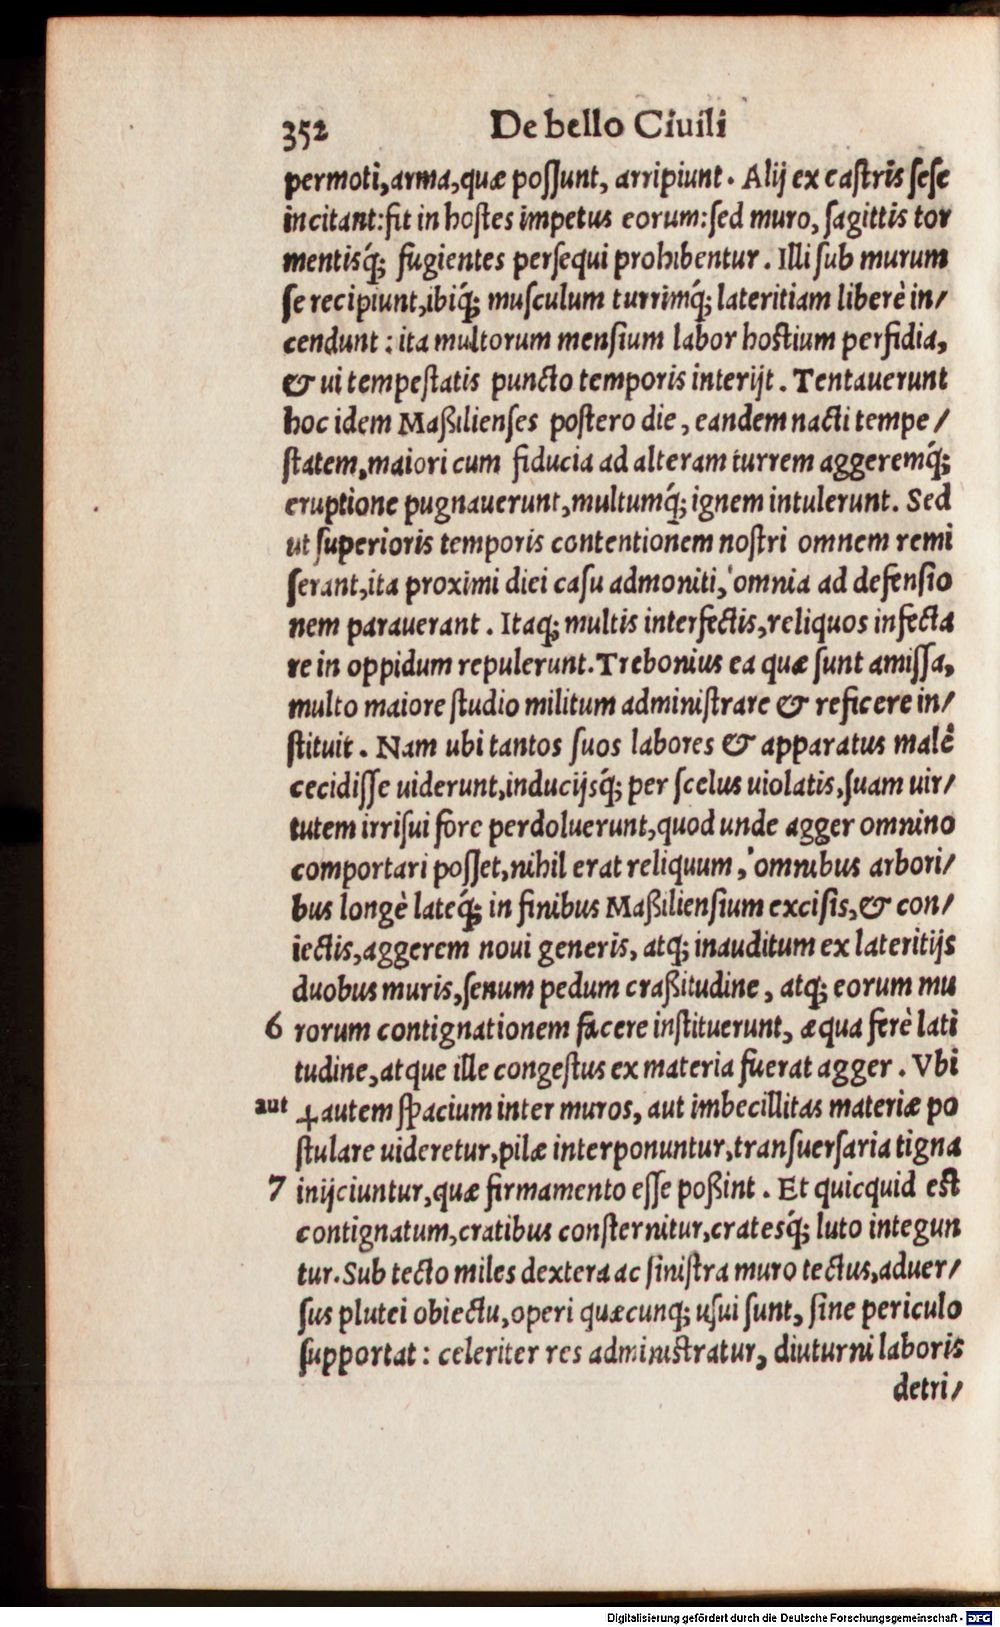 352 De bello Ciuili
permoti, arma, quæ poſſunt, arripiunt. Alij ex caſtris ſeſe
incitant: fit in hoſtes impetus eorum: ſed muro, ſagittis tor
mentisq́; fugientes perſequi prohibentur. Illi ſub murum
ſe recipiunt, ibiq́; muſculum turrimq́; lateritiam liberè in/
cendunt: ita multorum menſium labor hoſtium perfidia,
& ui tempeſtatis puncto temporis interijt. Tentauerunt
hoc idem Maßilienſes poſtero die, eandem nacti tempe/
ſtatem, maiori cum fiducia ad alteram turrem aggeremq́;
eruptione pugnauerunt, multumq́; ignem intulerunt. Sed
ut ſuperioris temporis contentionem noſtri omnem remi
ſerant, ita proximi diei caſu admoniti, omnia ad defenſio
nem parauerant. Itaq; multis interfectis, reliquos infecta
re in oppidum repulerunt. Trebonius ea quæ ſunt amiſſa,
multo maiore ſtudio militum adminiſtrare & reficere in/
ſtituit. Nam ubi tantos ſuos labores & apparatus malè
cecidiſſe uiderunt, inducijsq́; per ſcelus uiolatis, ſuam uir/
tutem irriſui fore perdoluerunt, quod unde agger omnino
comportari poſſet, nihil erat reliquum, omnibus arbori/
bus longè lateq́; in finibus Maßilienſium exciſis, & con/
iectis, aggerem noui generis, atq; inauditum ex lateritijs
duobus muris, ſenum pedum craßitudine, atq; eorum mu
6 rorum contignationem facere inſtituerunt, æqua ferè lati
tudine, atque ille congeſtus ex materia fuerat agger. Vbi
aut ✢autem ſpacium inter muros, aut imbecillitas materiæ po
ſtulare uideretur, pilæ interponuntur, tranſuerſaria tigna
7 inijciuntur, quæ firmamento eſſe poßint. Et quicquid eſt
contignatum, cratibus conſternitur, cratesq́; luto integun
tur. Sub tecto miles dextera ac ſiniſtra muro tectus, aduer/
ſus plutei obiectu, operi quæcunq; uſui ſunt, ſine periculo
ſupportat: celeriter res adminiſtratur, diuturni laboris
detri/
Digitalisierung gefördert durch die Deutsche Forschungsgemeinschaft - DFG